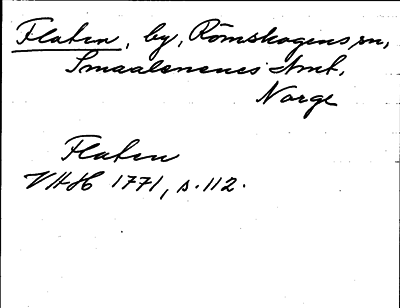 Flaten, by, Römskogens sn,
Smaalenenes Amt,
Norge
Flaten
VHH 1771, s. 112.